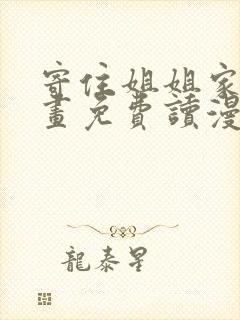 寄住姐姐家
畫免費讀漫
龍泰星